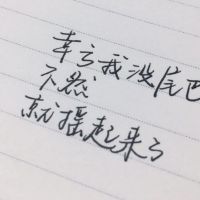 幸亏我没尾巴
不然
就摇起来了